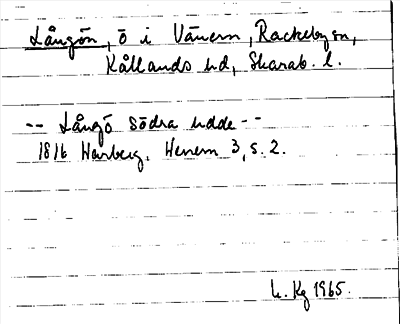 Långön, ö i Vänern, Rackeby sn,
Kållands hd, Skarab. l.
-- Långö södra udde --
1816 Warberg. Henem 3, s. 2.
L. Kg 1965.